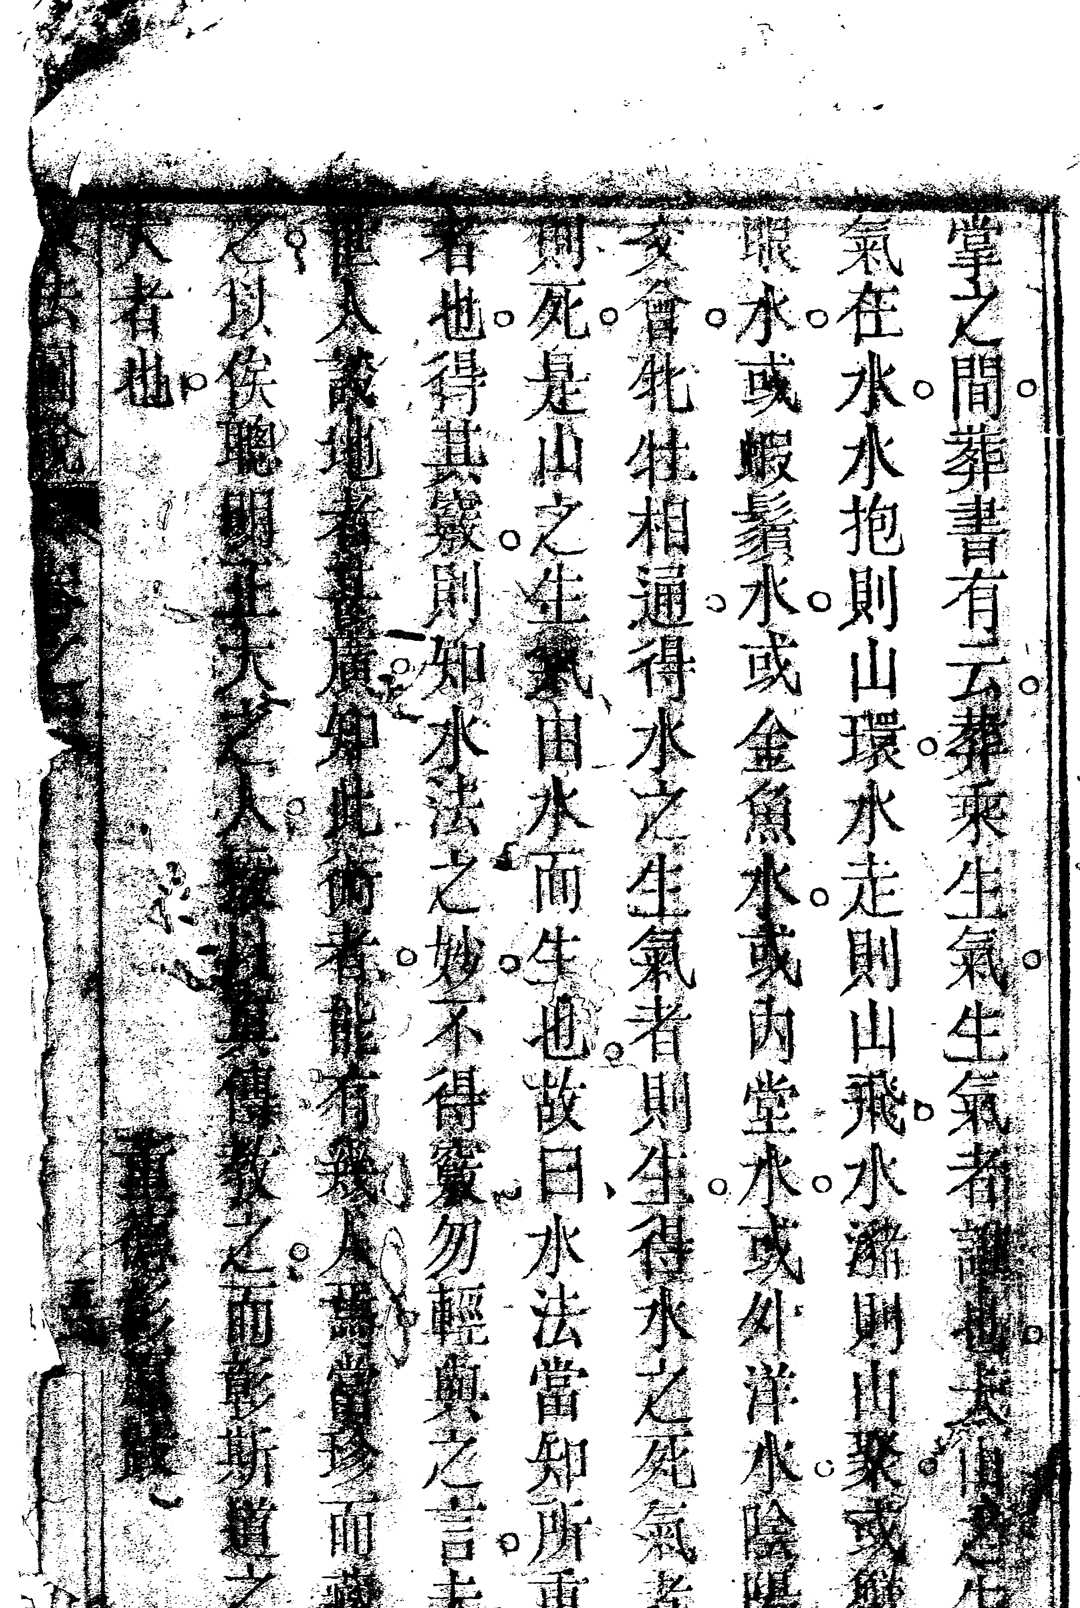 掌之間葬書有云葬乘生氣生氣者謂也夫山之生
氣在水水抱則山環水走則山飛水瀦則山聚或
水或蝦鬚水或金魚水或內堂水或外洋水陰陽
交會牝牡相通得水之生氣者則生得水之死氣者
則死是山之生氣由水而生也故曰水法當知所重
者也得其竅則知水法之妙不得竅勿輕與之言夫
世人談地者甚廣知此術者能有幾人焉當珍而藏
之以俟聰明正大之人授傳教之而彰斯道之
大者也
法圖說